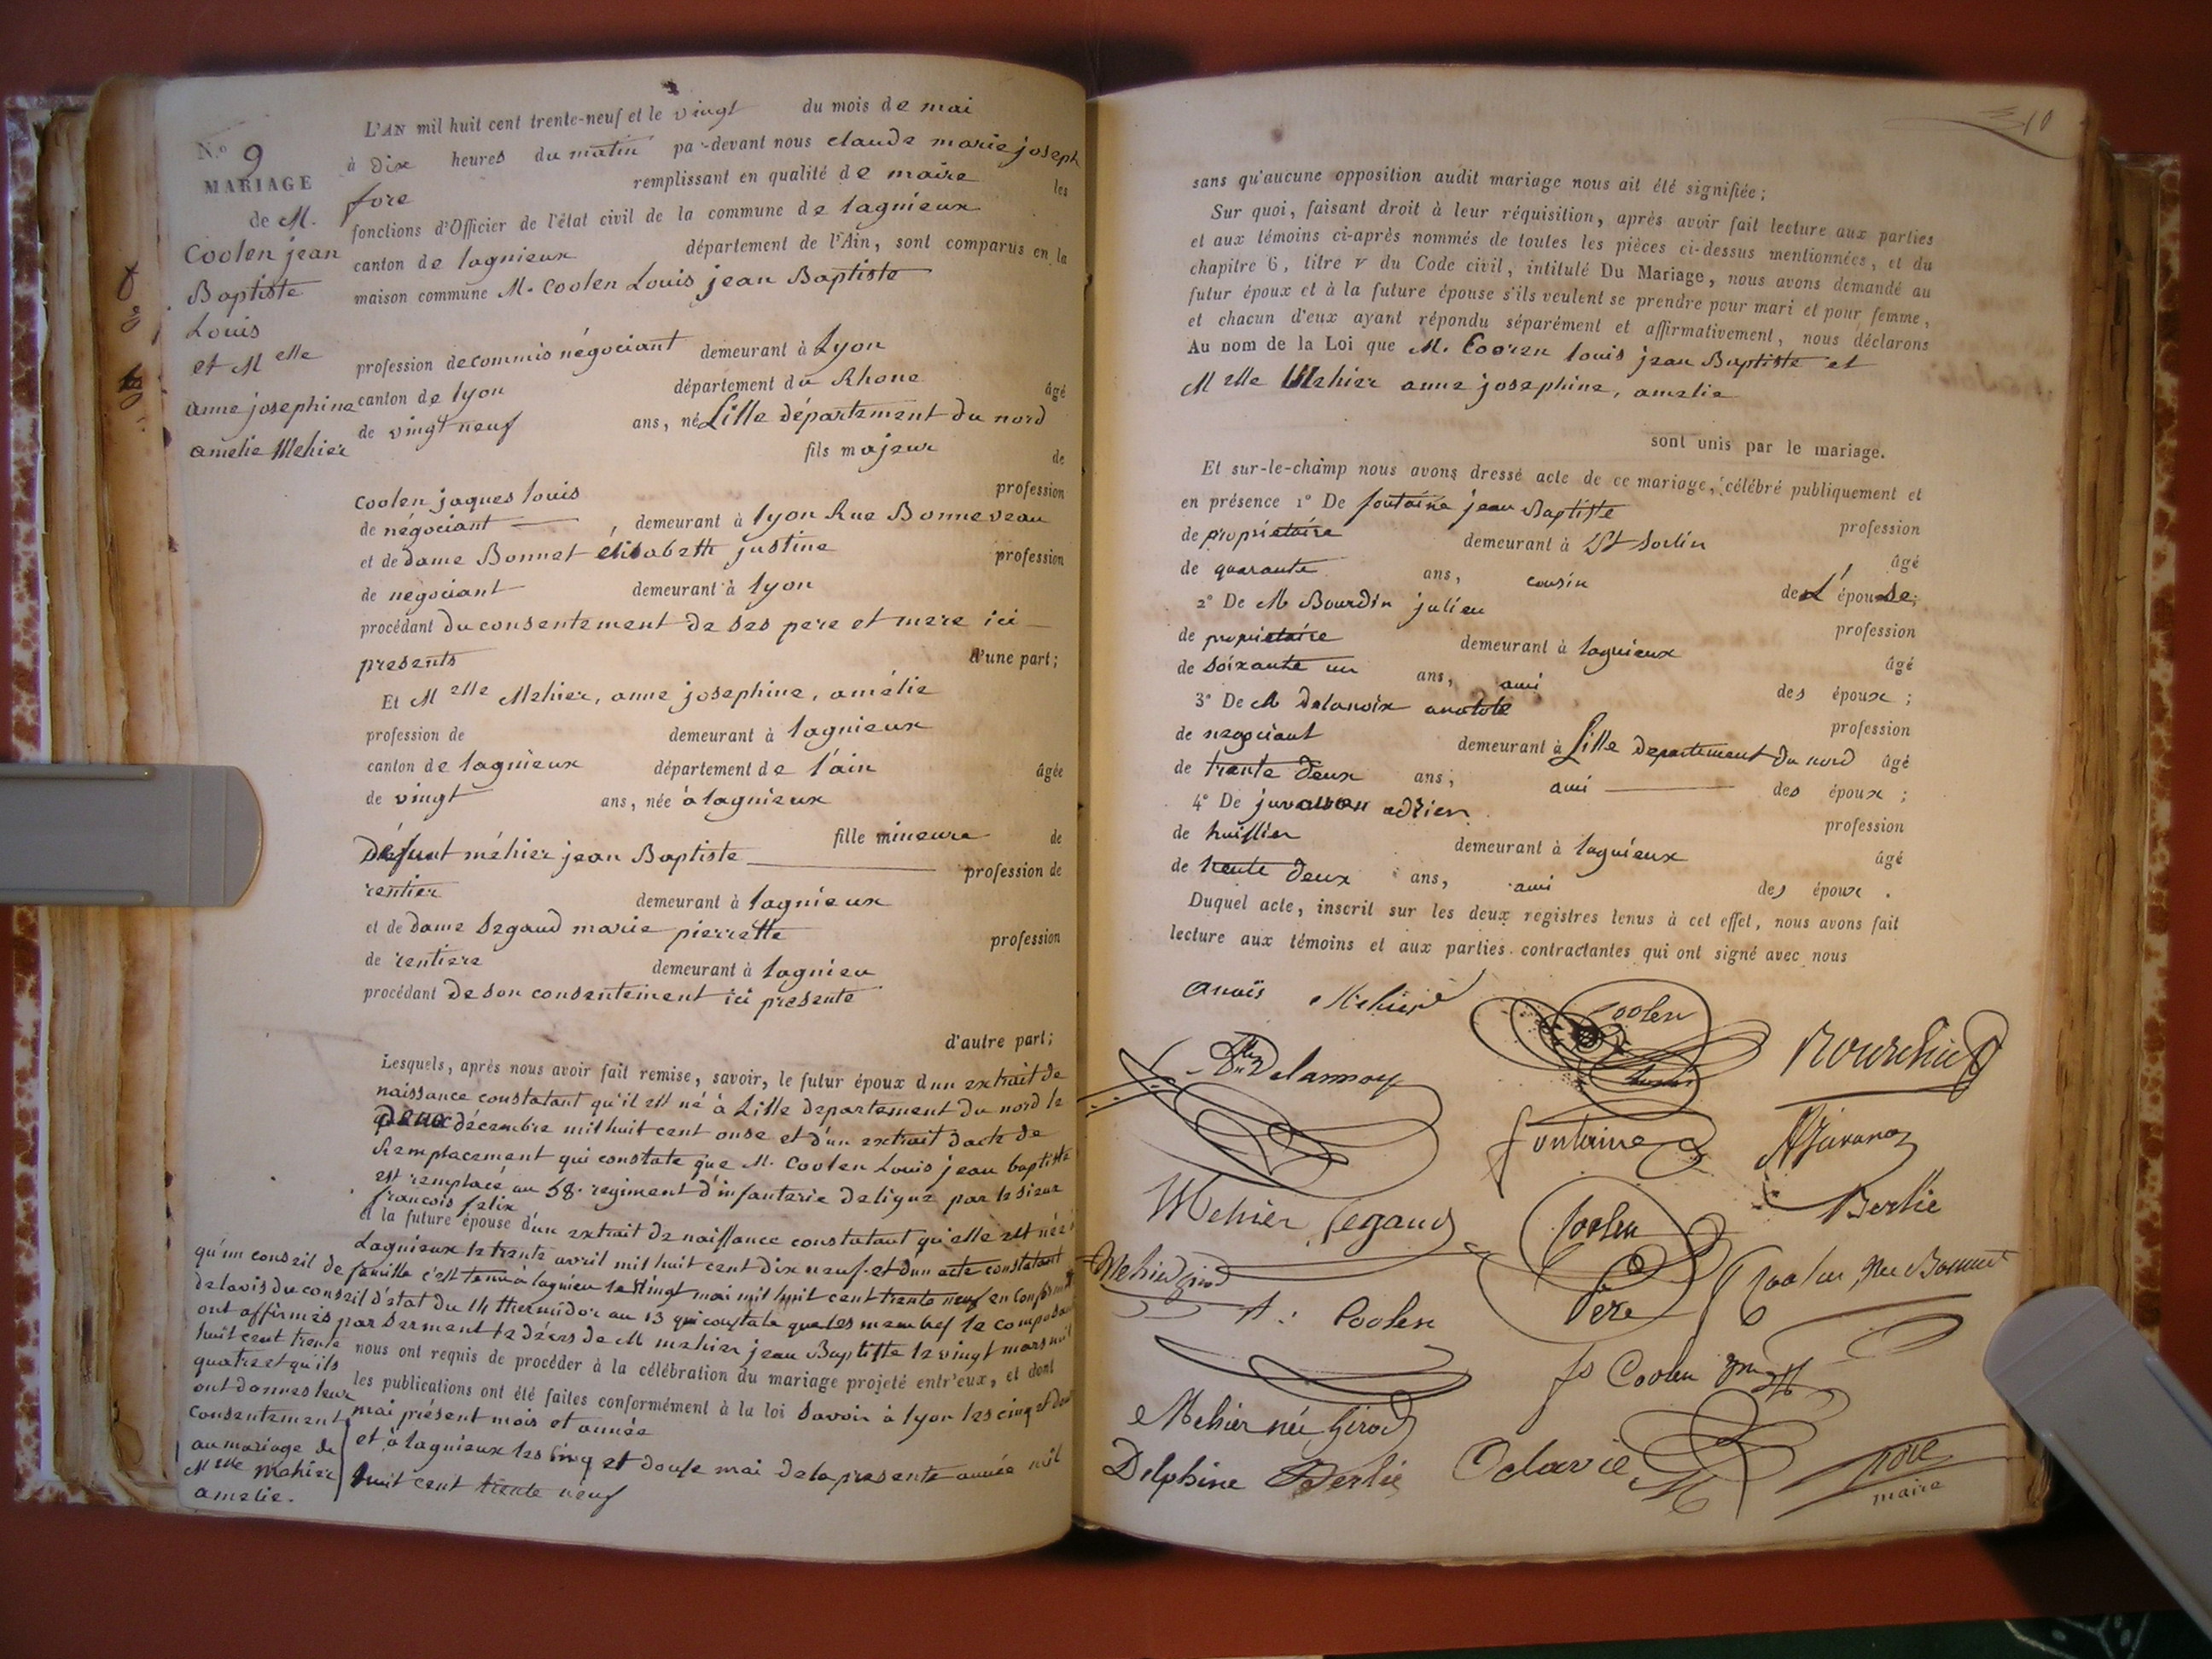 N.o 9
MARIAGE
de M.
Coolen jean
Baptiste
Louis
et M elle
anne josephine
amelie Mehier
L'AN mil huit cent trente-neuf et le vingt du mois de mai
à dix heures du matin par-devant nous claude marie joseph
fore remplissant en qualité de maire les
fonctions d'Officier de l'état civil de la commune de lagnieux
canton de lagnieux département de l'Ain, sont comparus en la
maison commune M. Coolen Louis jean Baptiste
profession de commis négociant demeurant à Lyon
canton de lyon département du Rhone âgé
de vingt neuf ans, né Lille département du nord
fils majeur de
Coolen jaques louis profession
de négociant , demeurant à lyon Rue Bonneveau
et de dame Bonnet élisabeth justine profession
de négociant demeurant à lyon
procédant du consentement de ses pere et mere ici
presents d'une part;
Et M elle Mehier, anne josephine, amélie
profession de demeurant à lagnieux
canton de lagnieux département de l'ain âgée
de vingt ans, née à lagnieux
fille mineure de
Défunt méhier jean Baptiste profession de
rentier demeurant à lagnieux
et de dame segaud marie pierrette profession
de rentiere demeurant à lagnieu
procédant de son consentement ici presente
d'autre part;
Lesquels, après nous avoir fait remise, savoir, le futur époux d'un extrait de
naissance constatant qu'il est né à Lille departement du nord le
deux décembre mil huit cent onse et d'un extrait d'acte de
Remplacement qui constate que M. Coolen Louis jean baptiste
est remplacé au 58. regiment d'infanterie de ligne par le sieur
francois felix
et la future épouse d'un extrait de naissance constatant qu'elle est née à
Lagnieux le trente avril mil huit cent dix neuf et d'un acte constatant
qu'un conseil de famille c'est tenu à lagnieu le vingt mai mil huit cent trente neuf en conformité
de lavis du conseil d'état du 14 thermidor an 13 qui constate que les membres le composant
ont affirmés par serment le décès de M mehier jean Baptiste le vingt mars mil
huit cent trente
quatre et qu'ils
ont donnes leur
consentement
au mariage de
M elle Mehier
amelie.
nous ont requis de procéder à la célébration du mariage projeté entr'eux, et dont
les publications ont été faites conformément à la loi savoir à lyon les cinq et douze
mai présent mois et année
et à lagnieux les cinq et douse mai de la presente année mil
huit cent trente neuf
10
sans qu'aucune opposition audit mariage nous ait été signifiée;
Sur quoi, faisant droit à leur réquisition, après avoir fait lecture aux parties
et aux témoins ci-après nommés de toutes les pièces ci-dessus mentionnées, et du
chapitre 6, titre V du Code civil, intitulé Du Mariage, nous avons demandé au
futur époux et à la future épouse s'ils veulent se prendre pour mari et pour femme,
et chacun d'eux ayant répondu séparément et affirmativement, nous déclarons
Au nom de la Loi que M. Coolen louis jean Baptiste et
M elle Mehier anne josephine, amelie
sont unis par le mariage.
Et sur-le-champ nous avons dressé acte de ce mariage, célébré publiquement et
en présence 1° De fontaine jean Baptiste profession
de propriétaire demeurant à St Sorlin , âgé
de quarante ans, cousin de L'épouse;
2° De M Bourdin julien profession
de propriétaire demeurant à lagnieux âgé
de soixante un ans, ami des époux ;
3° De M delanoix anatole profession
de negociant demeurant à Lille departement du nord âgé
de trente deux ans, ami des époux ;
4° De juvanon adrien profession
de huissier demeurant à lagnieux âgé
de trente deux ans, ami des époux .
Duquel acte, inscrit sur les deux registres tenus à cet effet, nous avons fait
lecture aux témoins et aux parties contractantes qui ont signé avec nous
Anaïs Mehier Coolen
Delannoy
fontaine AJuvanon
Berlie
Mehier Segaud Coolen Père Coolen née Bonnet
A: Coolen
fs Coolen
Mehier née Girod
Delphine Berlie Octavie M fore
maire